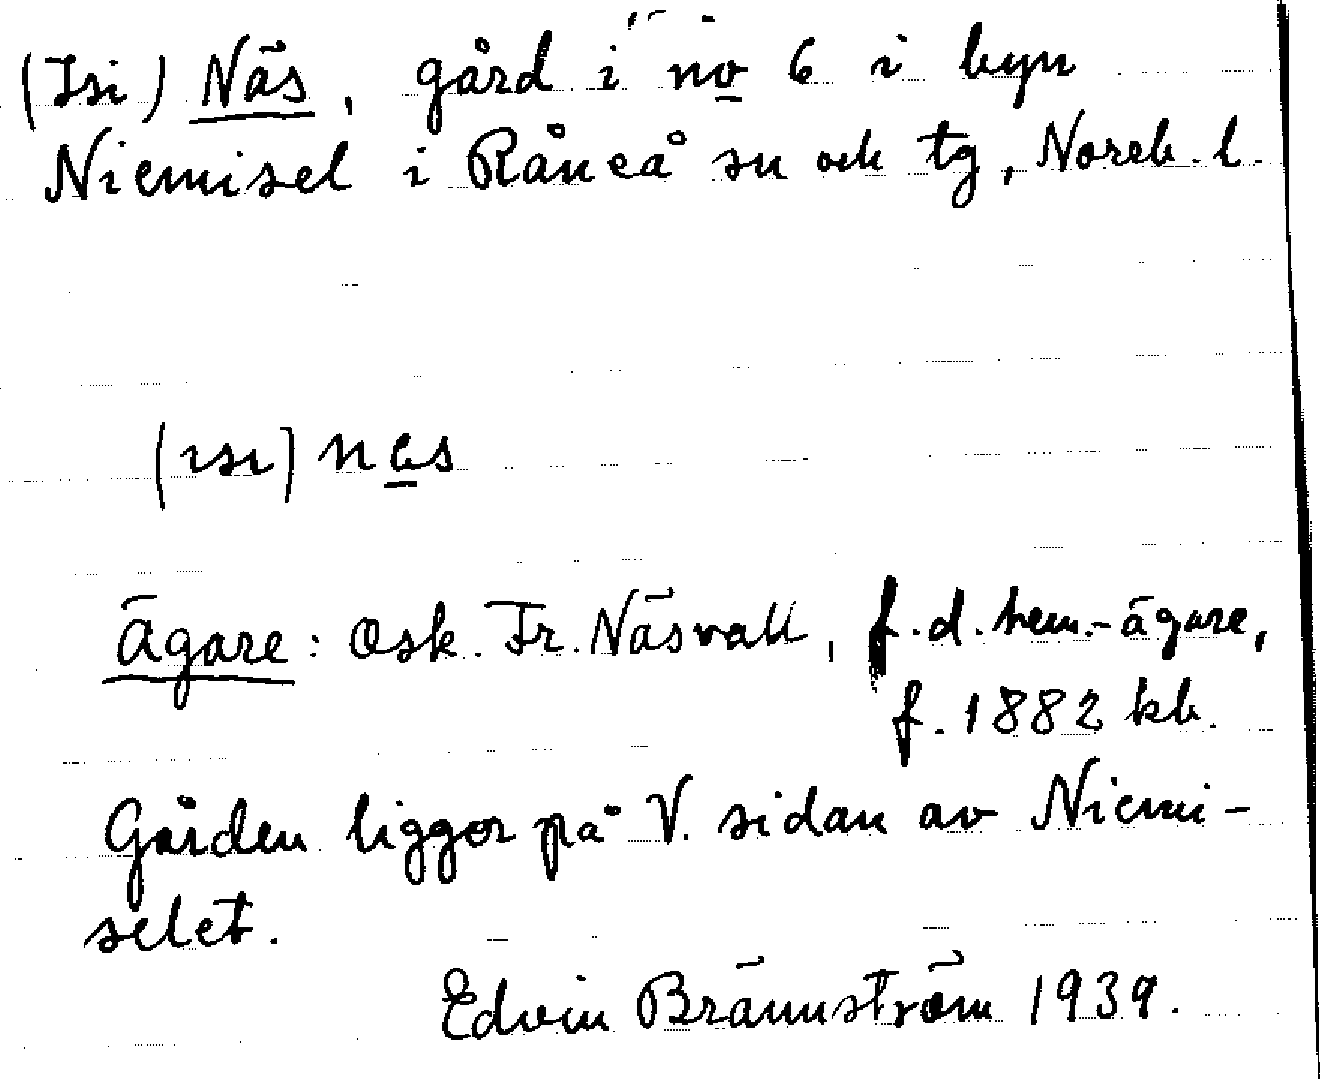 (Isi) Näs, gård i no 6 i byn
Niemisel i Råneå sn och tg, Norrb. l.
(ısı) nɛs
Ägare: Osk. Fr. Näsvall, f.d. hem.-ägare,
f. 1882 kb.
Gården ligger på V. sidan av Niemi-
selet.
Edvin Brännström 1939.